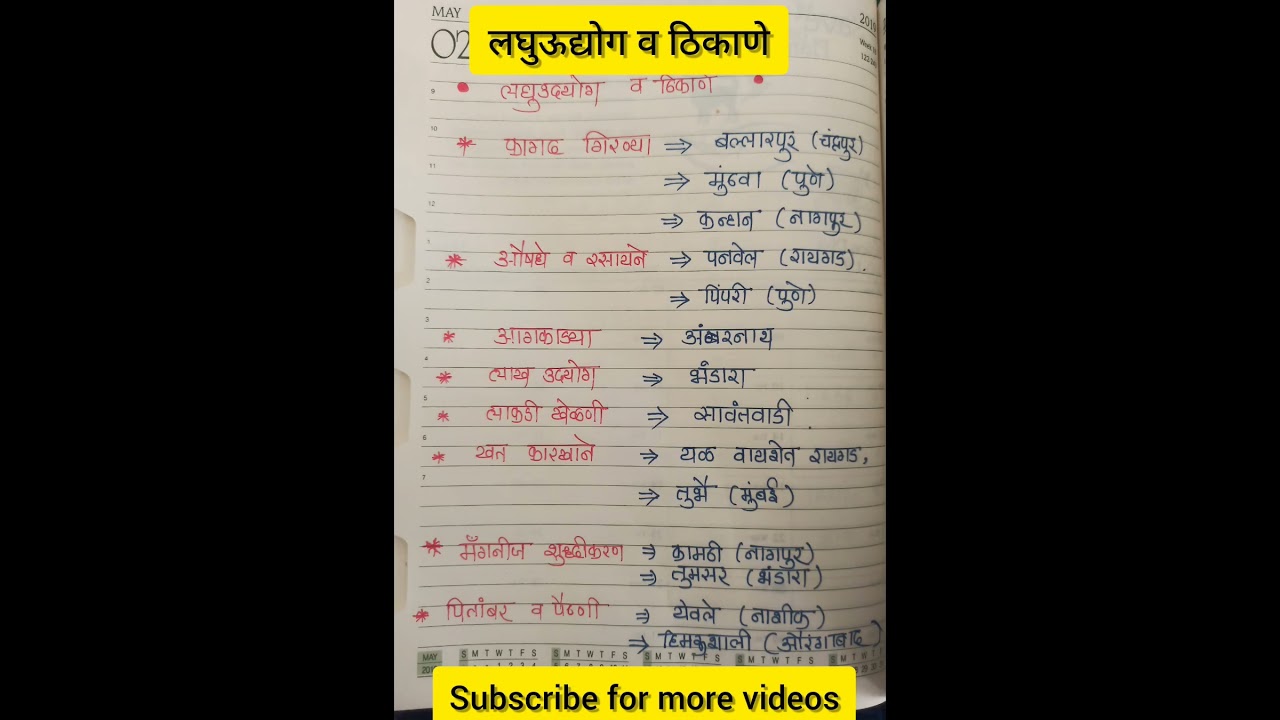 MAY
02
2019
लघुऊद्योग व ठिकाणे
लघुउदयोग व ठिकाणे
9
10
* कागद गिरण्या ⇒ बल्लारपुर (चंद्रपुर)
11
⇒ मुंढवा (पुणे)
12
⇒ कन्हान (नागपुर)
1
* औषधे व रसायने ⇒ पनवेल (रायगड).
2
⇒ पिंपरी (पुणे)
3
* आगकाड्या ⇒ अंबरनाथ
4
* लाख उदयोग ⇒ भंडारा
5
* लाकडी खेळणी ⇒ सावंतवाडी
6
* खत कारखाने ⇒ थळ वायशेत रायगड,
7
⇒ तुर्भे (मुंबई)
* मँगनीज शुद्धीकरण ⇒ कामठी (नागपुर)
⇒ तुमसर (भंडारा)
* पितांबर व पैठणी ⇒ येवले (नाशीक)
⇒ हिमरुशाली (औरंगाबाद)
MAY
S M T W T F S S M T W T F S S M T W T F S S M T W T F S
Subscribe for more videos